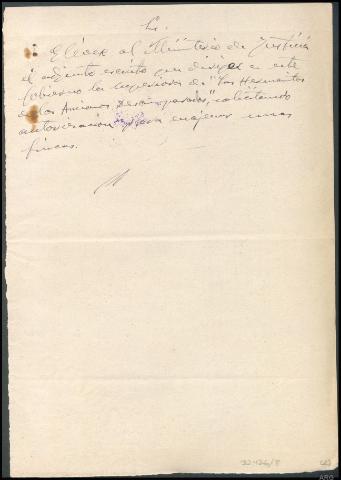 Elévese al Ministerio de Justicia
el adjunto escrito que dirige a este
Gobierno la Superiora de "Las Hermanitas
de los Ancianos Desamparados", solicitando
autorización para enajenar unas
fincas.
(2)
ARG